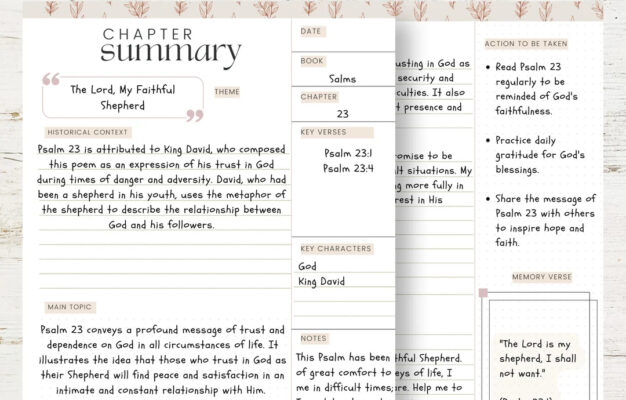 CHAPTER
summary
The Lord, My Faithful
Shepherd
THEME
HISTORICAL CONTEXT
Psalm 23 is attributed to King David, who composed
this poem as an expression of his trust in God
during times of danger and adversity. David, who had
been a shepherd in his youth, uses the metaphor of
the shepherd to describe the relationship between
God and his followers.
MAIN TOPIC
Psalm 23 conveys a profound message of trust and
dependence on God in all circumstances of life. It
illustrates the idea that those who trust in God as
their Shepherd will find peace and satisfaction in an
intimate and constant relationship with Him.
DATE
BOOK
Salms
CHAPTER
23
KEY VERSES
Psalm 23:1
Psalm 23:4
KEY CHARACTERS
God
King David
NOTES
This Psalm has been
of great comfort to
me in difficult times,
usting in God as
security and
culties. It also
t presence and
omise to be
lt situations. My
ng more fully in
rest in His
thful Shepherd.
eys of life, I
re. Help me to
ACTION TO BE TAKEN
Read Psalm 23
regularly to be
reminded of God's
faithfulness.
Practice daily
gratitude for God's
blessings.
Share the message of
Psalm 23 with others
to inspire hope and
faith.
MEMORY VERSE
"The Lord is my
shepherd, I shall
not want."